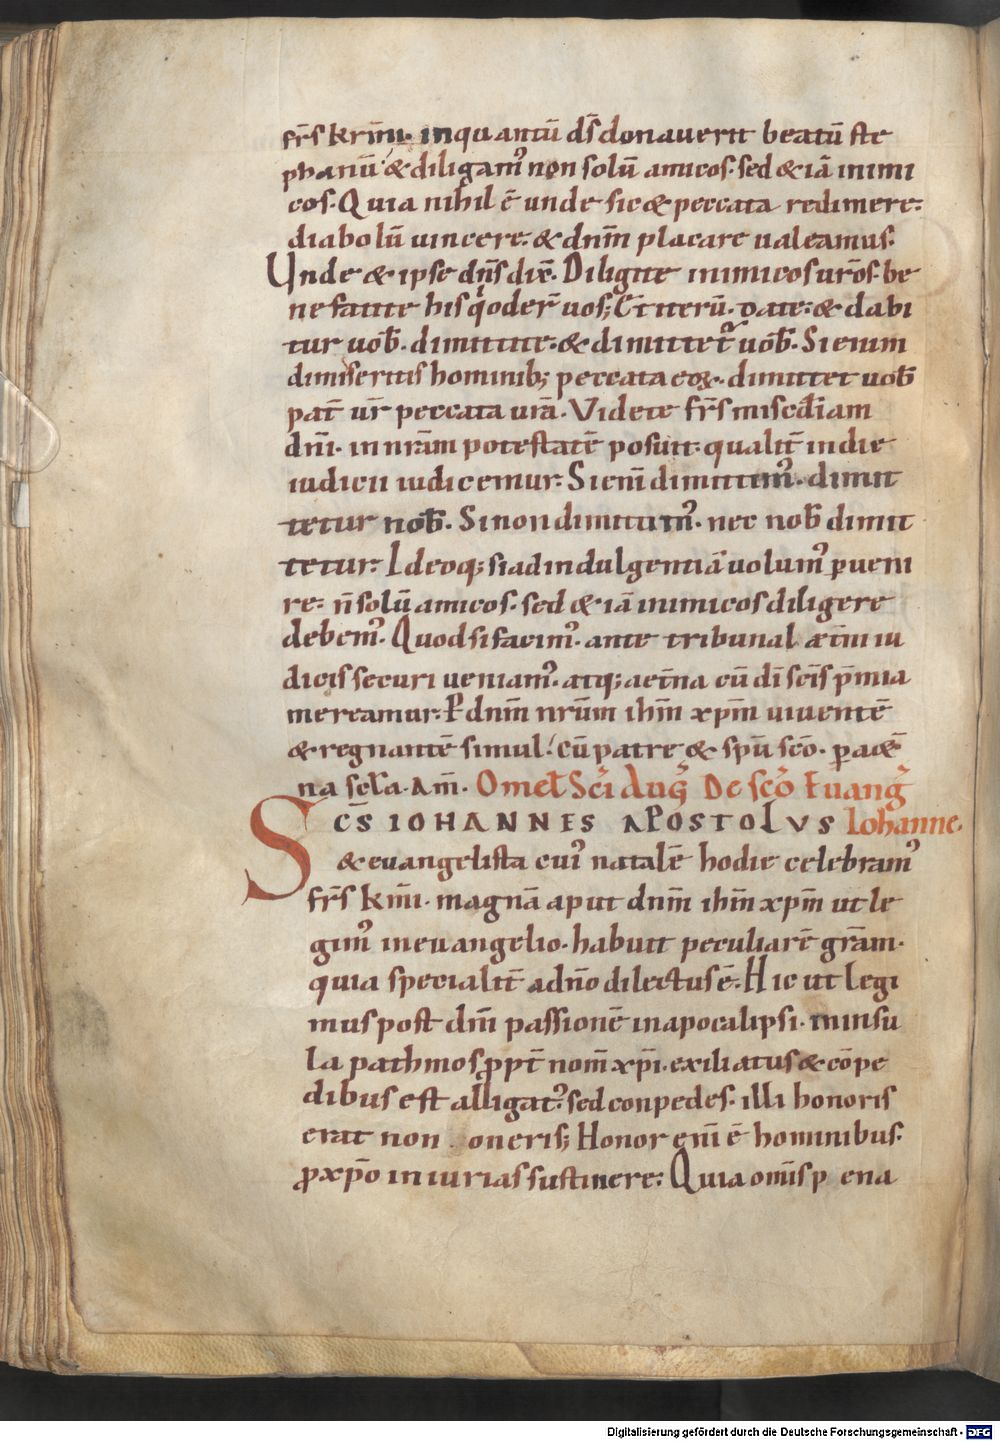 fr̄s kr̄im̄. inquantū ds̄ donauerit beatū ste
phanū & diligam᾽ non solū amicos. sed & iā inimi
cos. Quia nihil ē unde sic & peccata redimere:
diabolū uincere: & dnm̄ placare ualeamus.
Unde & ipse dn̄s dix̄. Diligite inimicos ur̄os. be
nefacite his q̇ oder̄ uos; Et̄ iterū. Date: & dabi
tur uob̄. dimittite: & dimittet᷑ uob̄. Si enim
dimiseritis hominib; peccata eoꝝ. dimittet uob̄
pat̄ ur̄ peccata ur̄a. Videte fr̄s misc̄diam
dn̄i. in nr̄am potestatē posuit. qualit̄ in die
iudicii iudicemur: Si enī dimittim᾽. dimit
tetur nob̄. Si non dimittim᾽. nec nob̄ dimit
tetur: Ideoq; si ad indulgentiā uolum᾽ ꝑueni
re: n̄ solū amicos. sed & iā inimicos diligere
debem᾽. Quod si facim᾽. ante tribunal æt̄ni iu
dicis securi ueniam᾽. atq; aet̄na cū di sc̄is p̄mia
mereamur: P dnm̄ nr̄um ihm̄ xp̄m uiuentē
& regnantē simul! cū patre & spū sc̄o. ꝑ aet̄
na sec̄la. Am̄. Omel̄ Sc̄i Aug̃ De sc̄o Euang̃
Sc̄s IOHANNES APOSTOLVS Iohanne.
& euangelista cui᾽ natalē hodie celebram᾽
fr̄s km̄i. magnā aput dnm̄ ihm̄ xp̄m ut le
gim᾽ in euangelio. habuit peculiarē gr̄am.
quia specialit̄ a dn̄o dilectus ē. Hic ut legi
mus post dn̄i passionē in apocalipsi. in insu
la pathmos ꝓpt̄ nom̄ xp̄i. exiliatus & cōpe
dibus est alligat᾽. sed conpedes. illi honoris
erat non oneris; Honor enī ē hominibus.
ꝓ xp̄o iniurias sustinere: Quia omīs p ena
Digitalisierung gefördert durch die Deutsche Forschungsgemeinschaft - DFG